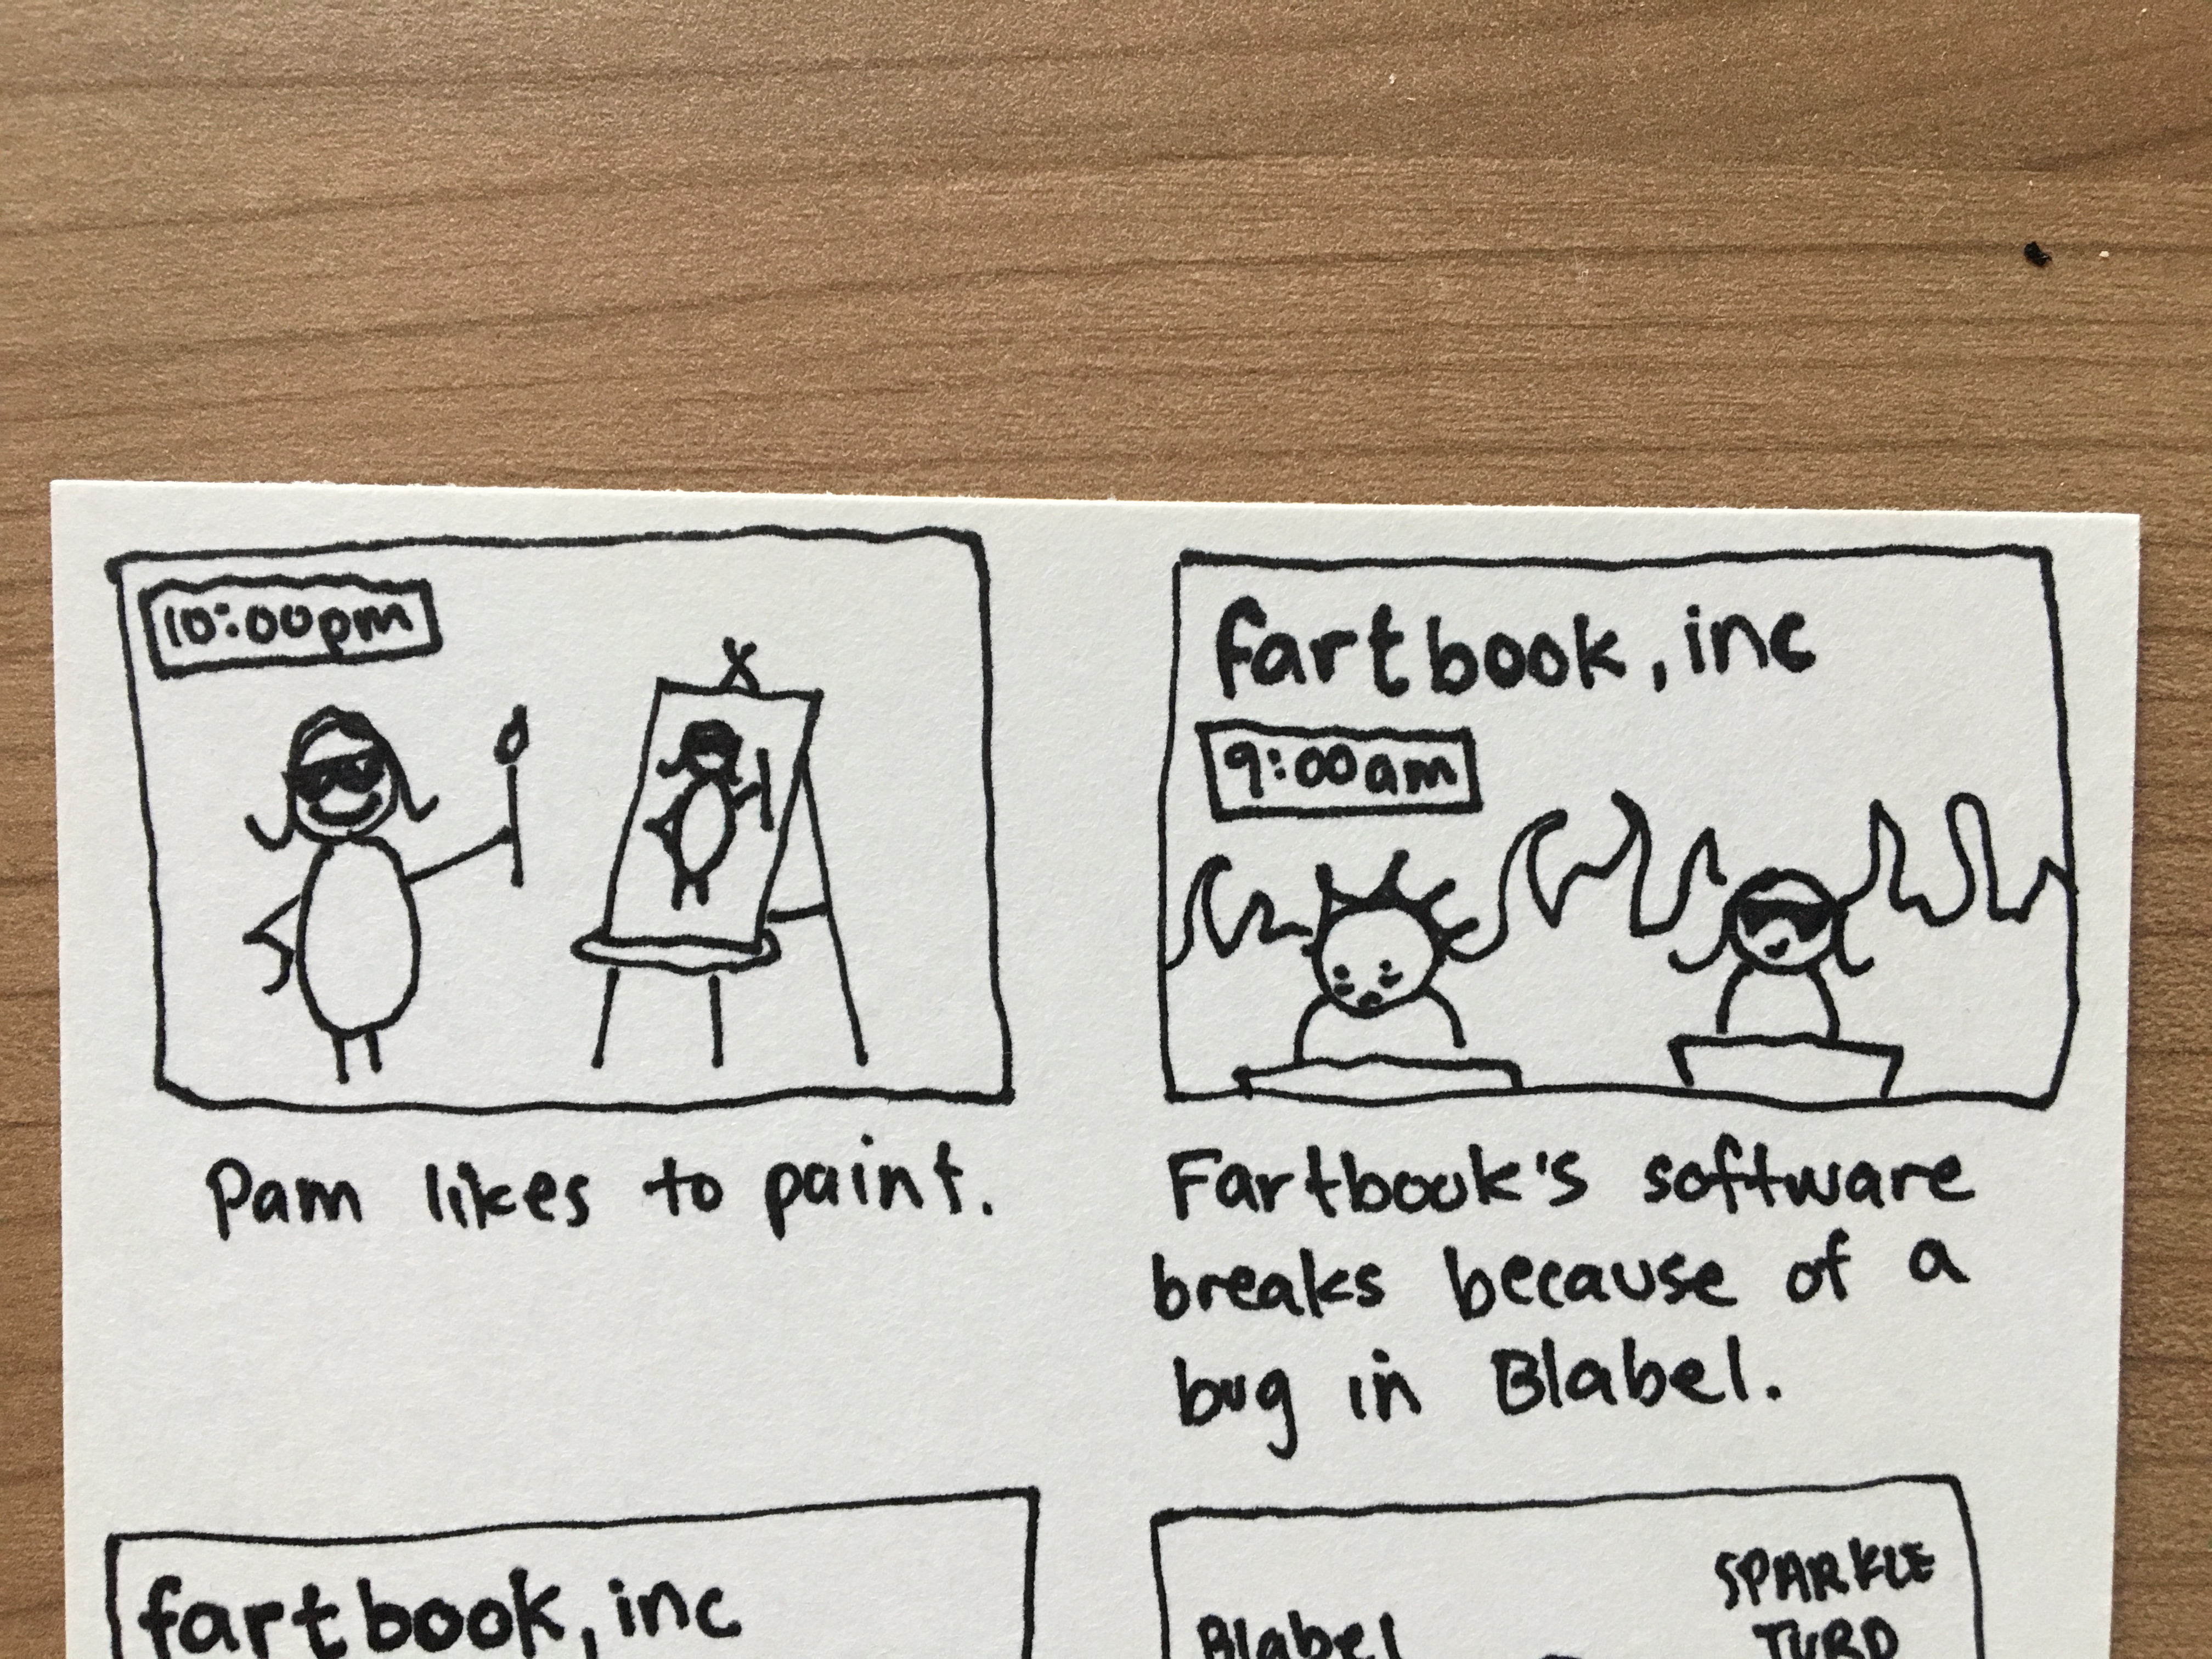 10:00pm
Pam likes to paint.
fartbook, inc
9:00am
Fartbook's software
breaks because of a
bug in Blabel.
fartbook, inc
Blabel
SPARKLE
TURD